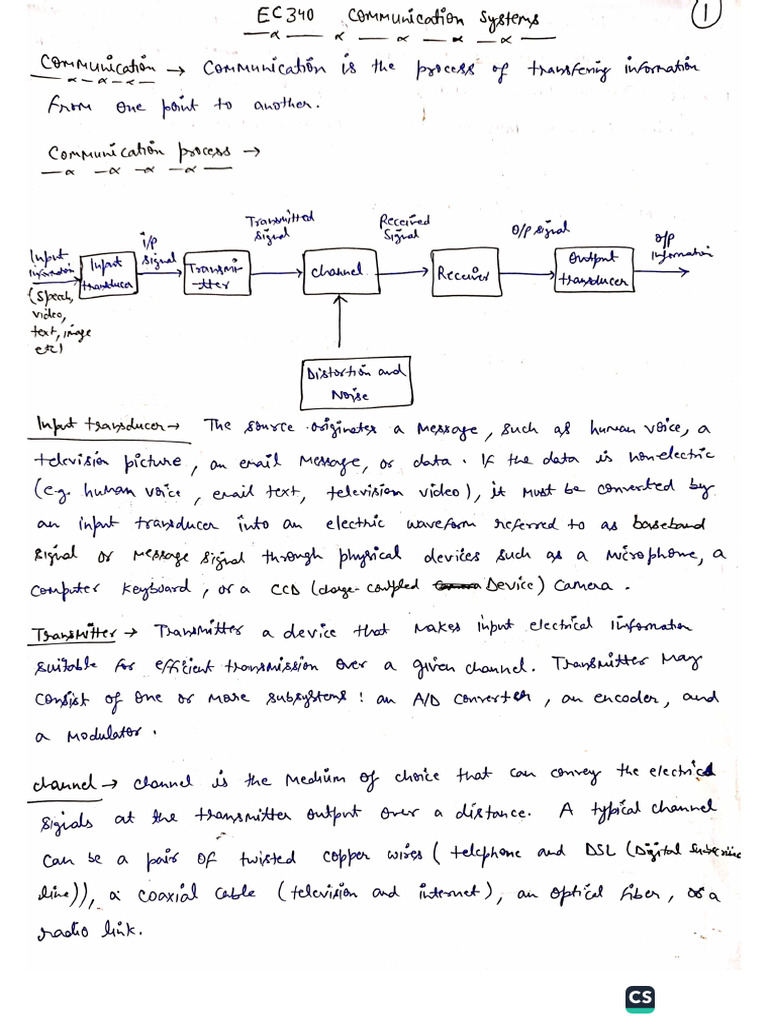 EC340 Communication Systems
1
Communication → Communication is the process of transfering information
from one point to another.
Communication process →
Input
information
(Speech,
video,
text, image
etc)
Input
transducer
i/p
signal
Transmi-
tter
Transmitted
signal
channel
Received
Signal
Receiver
O/P signal
Output
transducer
O/P
information
Distortion and
Noise
Input transducer → The source originates a message, such as human voice, a
television picture, an email message, or data. If the data is nonelectric
(e.g. human voice, email text, television video), it must be converted by
an input transducer into an electric waveform referred to as baseband
signal or message signal through physical devices such as a microphone, a
computer keyboard, or a CCD (charge-coupled Device) camera.
Transmitter → Transmitter a device that makes input electrical information
suitable for efficient transmission over a given channel. Transmitter may
consist of one or more subsystems: an A/D converter, an encoder, and
a modulator.
channel → channel is the medium of choice that can convey the electrical
signals at the transmitter output over a distance. A typical channel
can be a pair of twisted copper wires (telephone and DSL (Digital
line)), a coaxial cable (television and internet), an optical fiber, or a
radio link.
CS